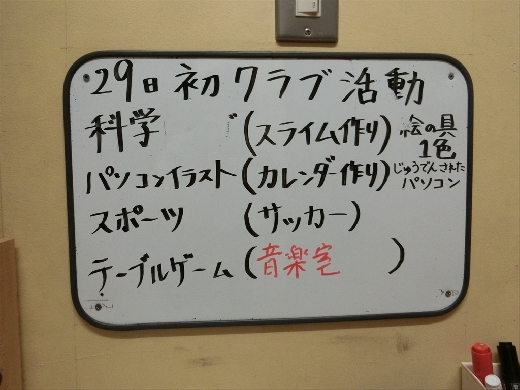 29日初クラブ活動
科学 (スライム作り) 絵の具
1色
パソコンイラスト (カレンダー作り) じゅうでんされた
パソコン
スポーツ (サッカー)
テーブルゲーム (音楽室)